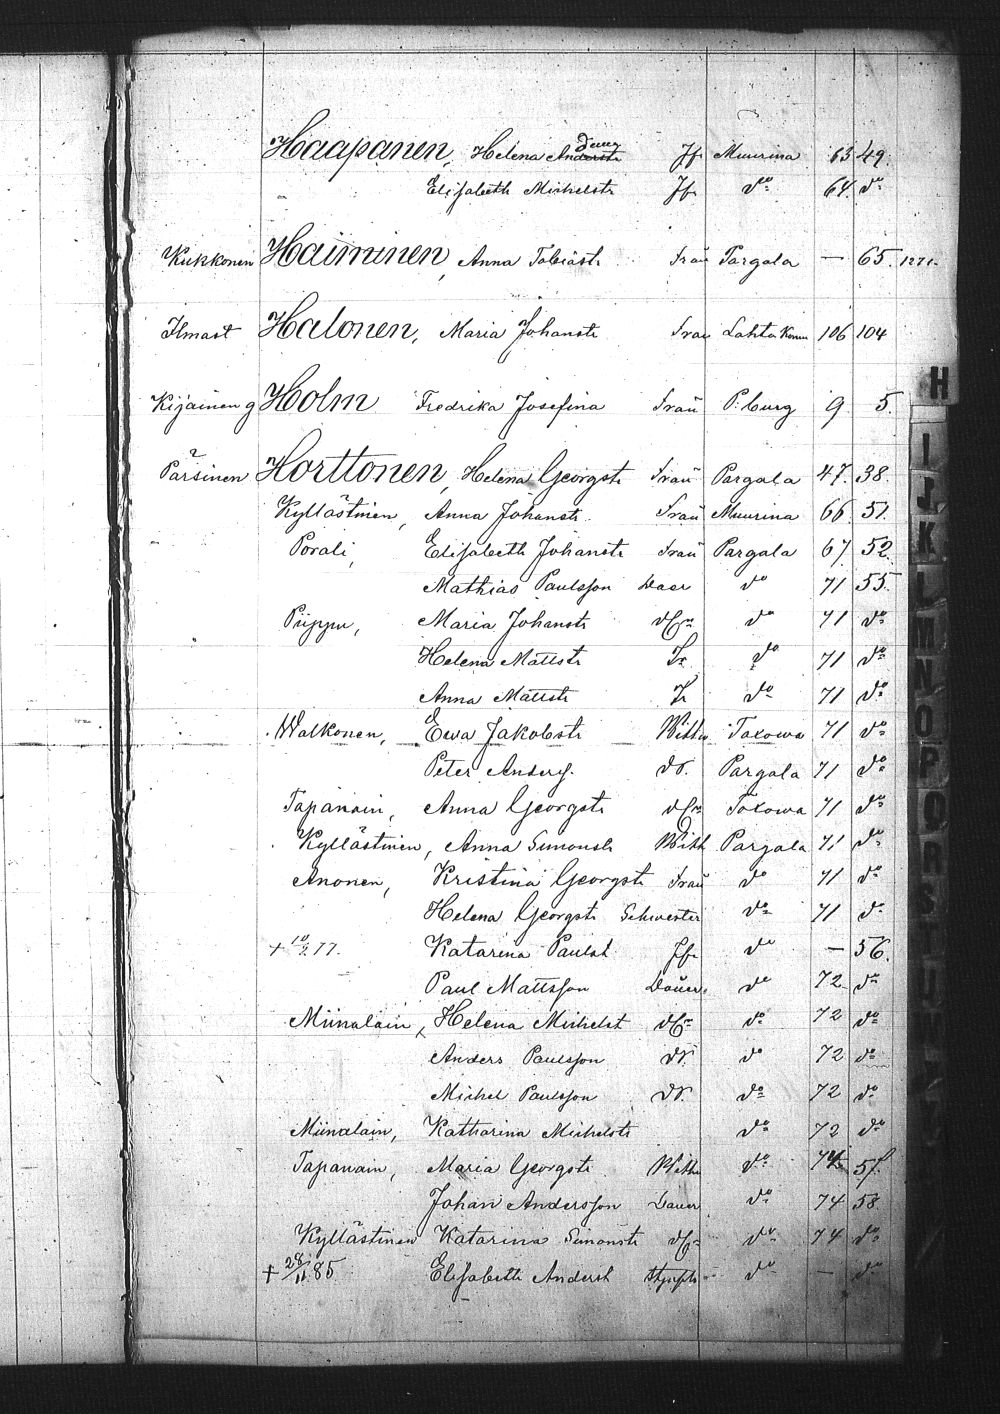 Haapanen, Helena Anderstr Jfr Muurina 63 49.
Elisabeth Michelstr Jfr do 64. do
Kukkonen Haiminen, Anna Tobiastr Frau Pargala — 65.
Ilmast Halonen, Maria Johanstr Frau Lahta 106 104
Kijainen g Holm Fredrika Josefina Frau P.burg 9 5.
Pärsinen Horttonen, Helena Georgstr Frau Pargala 47. 38.
Kyllästinen, Anna Johanstr. Frau Muurina 66. 51.
Porali, Elisabeth Johanstr Frau Pargala 67 52.
Mathias Paulsson do 71 55.
Piippu, Maria Johanstr do 71 do
Helena Mattstr do 71 do
Anna Mattstr do 71 do
Walkonen, Ewa Jakobstr Wittw Toxowa 71 do
Peter Pargala 71 do
Tapanain, Anna Georgstr Toxowa 71 do
Kyllästinen, Anna Simonstr Witt Pargala 71 do
Anonen, Kristina Georgstr Frau do 71 do
Helena Georgstr Schwester do 71 do
+ 10/2 77. Katarina Paulst Jfr do — 56.
Paul Mattsson Bauer. do 72 do
Miinalain, Helena Michelst do 72 do
Anders Paulsson do 72 do
Michel Paulsson do 72 do
Miinalain, Katharina Michelstr do 72 do
Tapanain, Maria Georgstr Wittw do 74. 57
Johan Andersson Bauer do 74 58
Kyllästinen Katarina Simonstr do 74 do
+ 28/11 85 Elisabeth Anderst do — do
H
I
J
K
L
M
N
O
P
Q
R
S
T
U